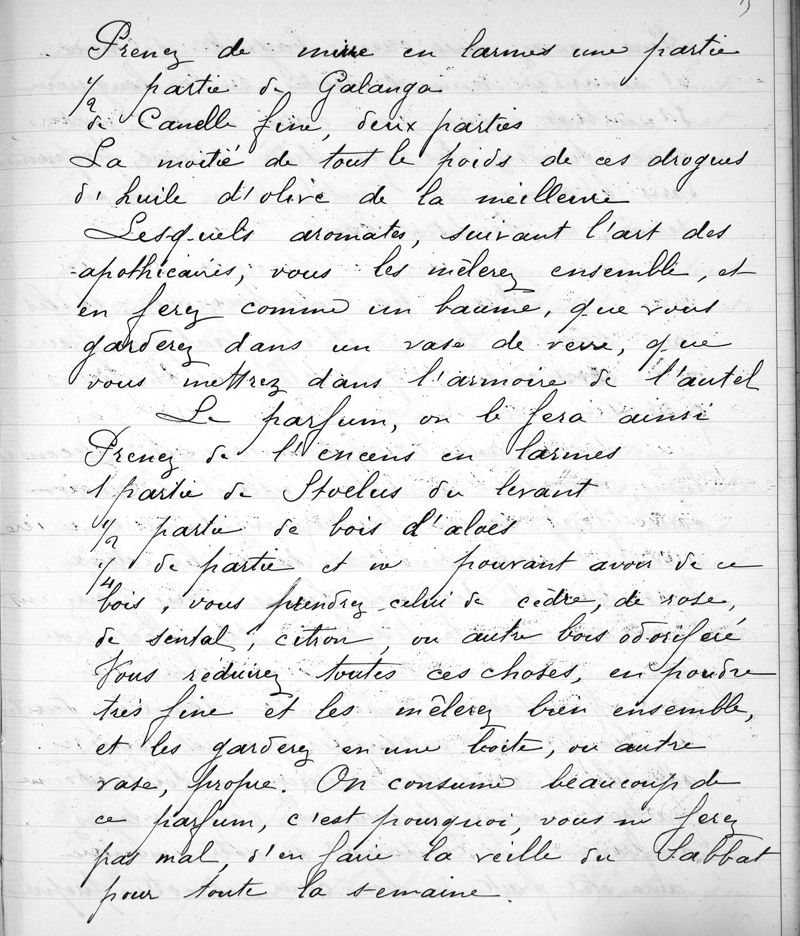 Prenez de mirre en larmes une partie
1/2 partie de Galanga
de Canelle fine, deux parties
La moitié de tout le poids de ces drogues
d'huile d'olive de la meilleure
Les-quels aromates, suivant l'art des
apothicaires, vous les mêlerez ensemble, et
en ferez comme un baume, que vous
garderez dans un vase de verre, que
vous mettrez dans l'armoire de l'autel
Le parfum, on le fera ainsi
Prenez de l'encens en larmes
1 partie de du levant
1/2 partie de bois d'aloès
1/4 de partie et ne pouvant avoir de ce
bois, vous prendrez celui de cèdre, de rose,
de sental, citron, ou autre bois odoriferé
Vous réduirez toutes ces choses, en poudre
très fine et les mêlerez bien ensemble,
et les garderez en une boîte, ou autre
vase, propre. On consume beaucoup de
ce parfum, c'est pourquoi, vous ne ferez
pas mal, d'en faire la veille du Sabbat
pour toute la semaine.